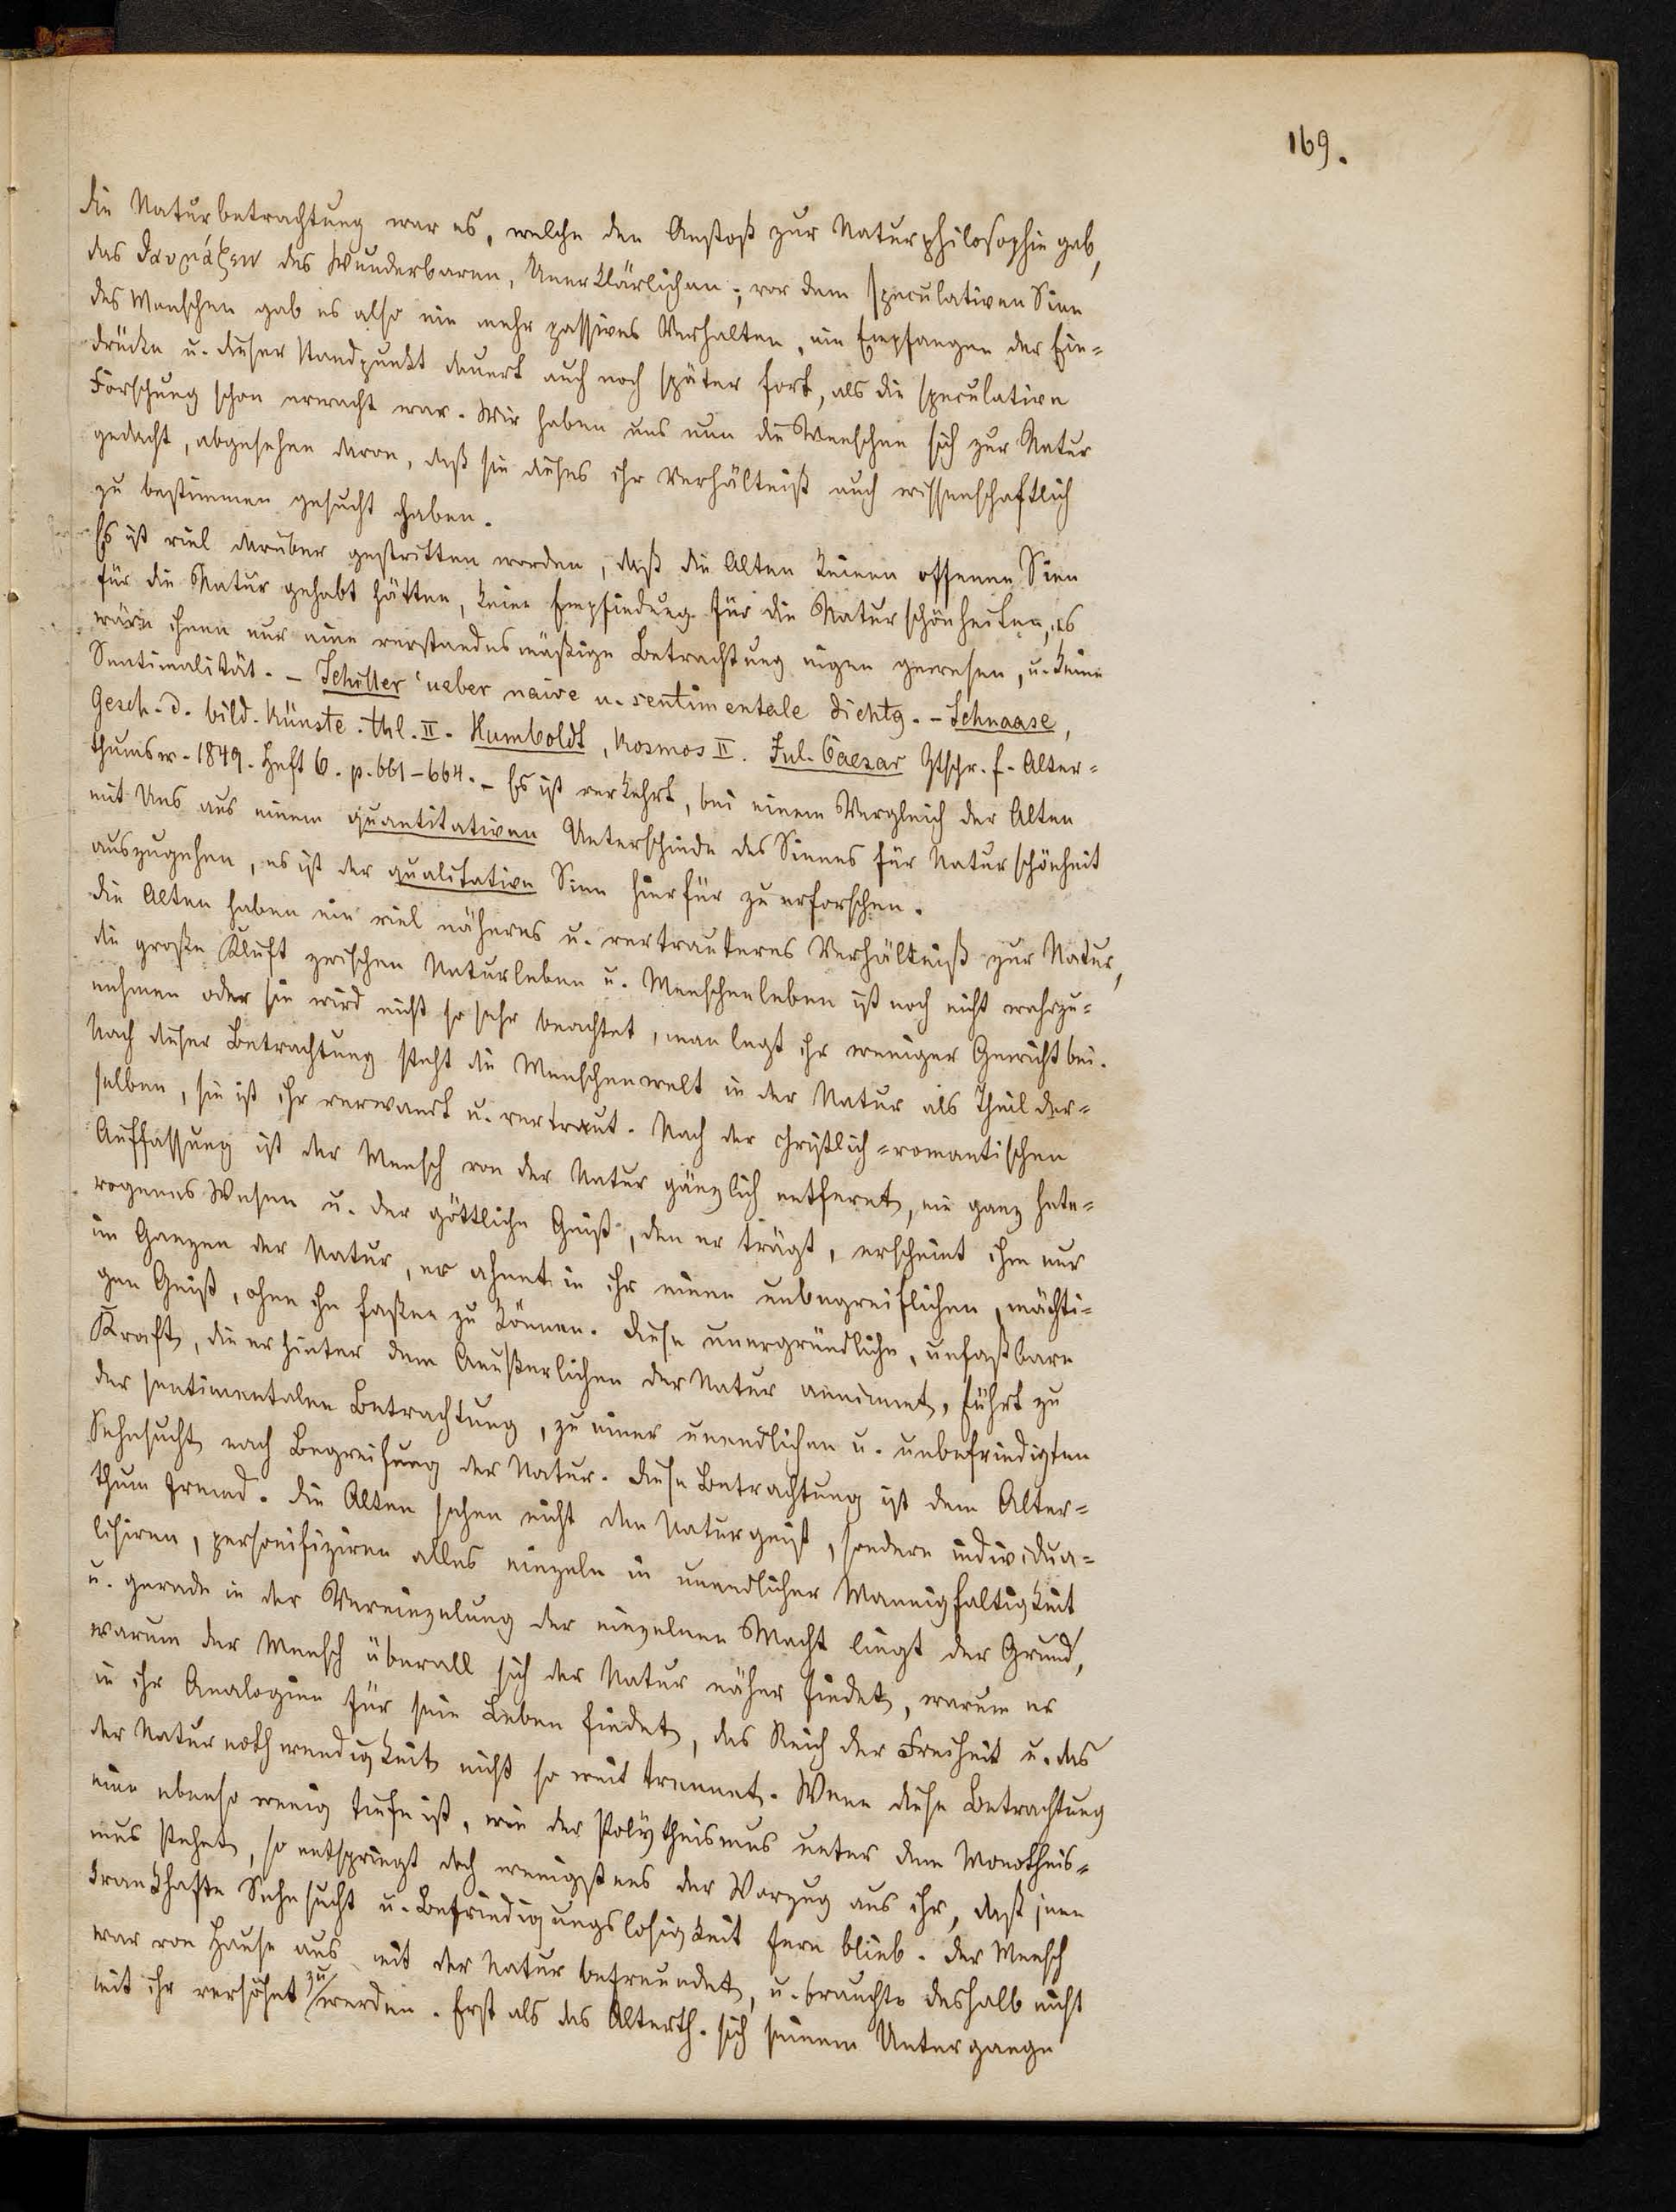 169.
die Naturbetrachtung war es, welche den Anstoß zur Naturphilosophie gab,
das θαυμάζειν des Wunderbaren, Unerklärlichen; vor dem speculativen Sinn
des Menschen gab es also ein mehr passives Verhalten, ein Empfangen der Ein-
drücke u. dieser Standpunkt dauert auch noch später fort, als die speculative
Forschung schon erwacht war. Wir haben uns nun die Menschen sich zur Natur
gedacht, abgesehen davon, daß sie dieses ihr Verhältniß auch wissenschaftlich
zu bestimmen gesucht haben.
Es ist viel darüber gestritten worden, daß die Alten keinen offenen Sinn
für die Natur gehabt hätten, keine Empfindung für die Naturschönheiten, es
wäre ihnen nur eine verstandesmäßige Betrachtung eigen gewesen, u. keine
Sentimalität. – Schiller 'ueber naive u. sentimentale Dichtg. – Schnaase,
Gesch. d. bild. Künste. thl. II. Humboldt, Kosmos II. Jul. Caesar Ztschr. f. Alter-
thumsw. 1849. Heft 6. p. 661–664. – Es ist verkehrt, bei einem Vergleich der Alten
mit Uns aus einem quantitativen Unterschiede des Sinnes für Naturschönheit
auszugehen, es ist der qualitative Sinn hierfür zu erforschen.
die Alten haben ein viel näheres u. vertrauteres Verhältniß zur Natur,
die große Kluft zwischen Naturleben u. Menschenleben ist noch nicht wahrzu-
nehmen oder sie wird nicht so sehr beachtet, man legt ihr weniger Gewicht bei.
Nach dieser Betrachtung steht die Menschenwelt in der Natur als Theil der-
selben, sie ist ihr verwandt u. vertraut. Nach der christlich-romantischen
Auffassung ist der Mensch von der Natur gänzlich entfernt, ein ganz hete-
rogenes Wesen u. der göttliche Geist, den er trägt, erscheint ihm nur
im Ganzen der Natur, er ahnet in ihr einen unbegreiflichen, mächti-
gen Geist, ohne ihn faßen zu können. diese unergründliche, unfaßbare
Kraft, die er hinter dem Aeußerlichen der Natur annimmt, führt zu
der sentimentalen Betrachtung, zu einer unendlichen u. unbefriedigten
Sehnsucht nach Begreifung der Natur. diese Betrachtung ist dem Alter-
thum fremd. die Alten sehen nicht den Naturgeist, sondern individua-
lisiren, personifiziren alles einzeln in unendlicher Mannigfaltigkeit
u. gerade in der Vereinzelung der einzelnen Macht liegt der Grund,
warum der Mensch überall sich der Natur näher findet, warum er
in ihr Analogien für sein Leben findet, das Reich der Freiheit u. das
der Naturnothwendigkeit nicht so weit trennt. Wenn diese Betrachtung
eine ebenso wenig tiefe ist, wie der Polytheismus unter dem Monotheis-
mus stehet, so entspringt doch wenigstens der Vorzug aus ihr, daß jene
krankhafte Sehnsucht u. Befriedigungslosigkeit fern blieb. der Mensch
war von Hause aus mit der Natur befreundet, u. brauchte deshalb nicht
mit ihr versöhnt zu werden. Erst als das Alterth. sich seinem Untergange